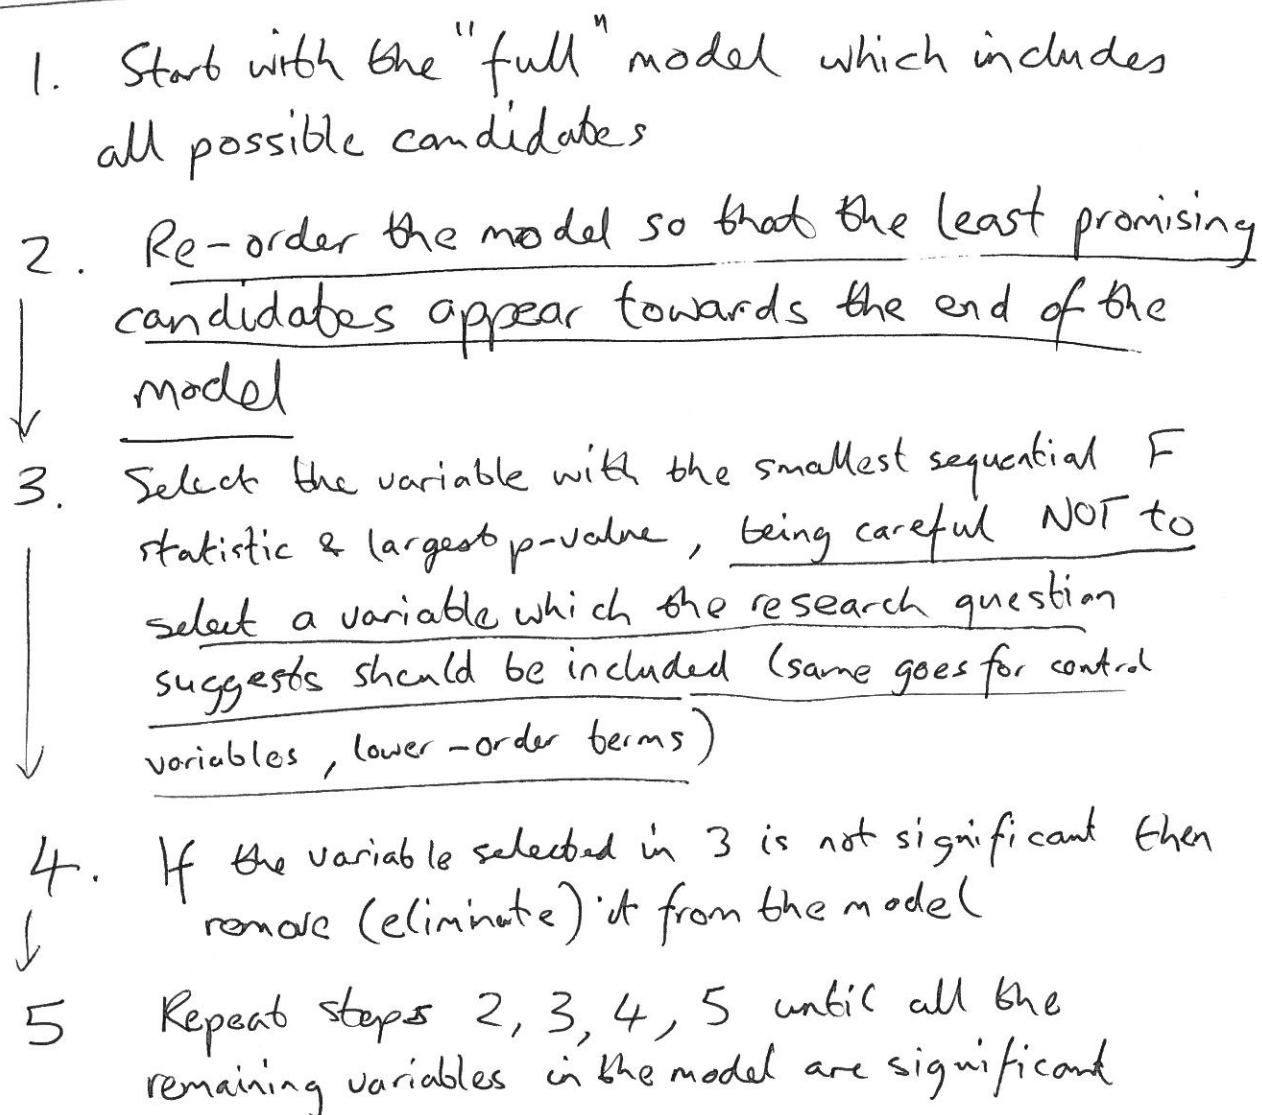 1. Start with the "full" model which includes
all possible candidates
2. Re-order the model so that the least promising
candidates appear towards the end of the
model
3. Select the variable with the smallest sequential F
statistic & largest p-value, being careful NOT to
select a variable which the research question
suggests should be included (same goes for control
variables, lower-order terms)
4. If the variable selected in 3 is not significant then
remove (eliminate) it from the model
5 Repeat steps 2, 3, 4, 5 until all the
remaining variables in the model are significant